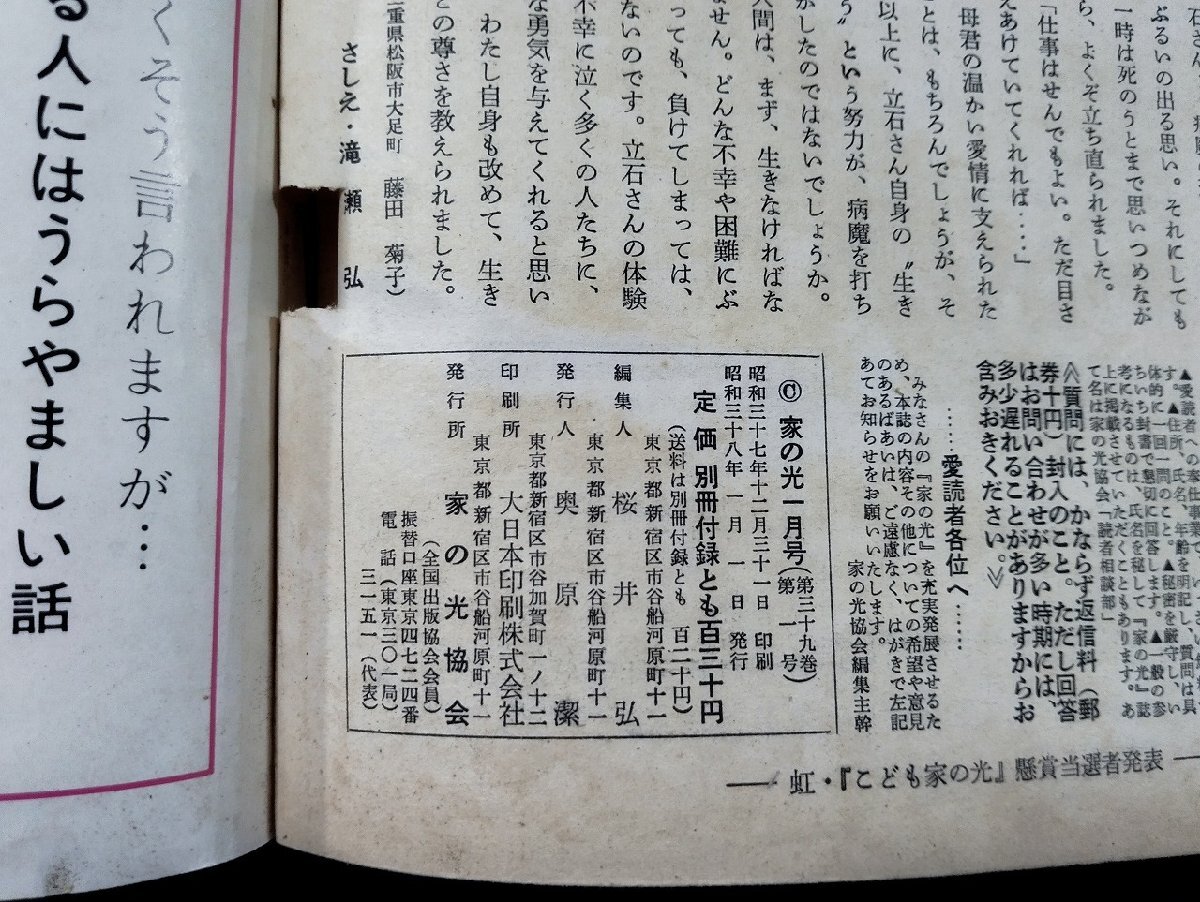 ぶるいの出る思い。それにしても
一時は死のうとまで思いつめなが
ら、よくぞ立ち直られました。
「仕事はせんでもよい。ただ目さ
えあけていてくれれば‥‥」
母君の温かい愛情に支えられた
ことは、もちろんでしょうが、そ
以上に、立石さん自身の〝生き
う〟という努力が、病魔を打ち
がしたのではないでしょうか。
人間は、まず、生きなければな
ません。どんな不幸や困難にぶ
っても、負けてしまっては、
ないのです。立石さんの体験
不幸に泣く多くの人たちに、
な勇気を与えてくれると思い
わたし自身も改めて、生き
との尊さを教えられました。
重県松阪市大足町 藤田 菊子）
さしえ・滝瀬 弘
体的に一回一問のこと。▲秘密を厳守し、い
ちいち封書で懇切に回答します。▲一般の参
考になるものは、氏名を秘して『家の光』誌
上に掲載させていただくこともあります。あ
て名は家の光協会「読者相談部」
≪質問には、かならず返信料（郵
券十円）封入のこと。ただし回答
はお問い合わせが多い時期には、
多少遅れることがありますからお
含みおきください。≫
……愛読者各位へ……
みなさんの『家の光』を充実発展させるた
め、本誌の内容その他についての希望や意見
のあるばあいは、ご遠慮なく、はがきで左記
あてお知らせをお願いいたします。
家の光協会編集主幹
© 家の光一月号（第三十九巻 第一号）
昭和三十七年十二月三十一日 印刷
昭和三十八年 一月 一日 発行
定価 別冊付録とも百三十円
（送料は別冊付録とも 百二十円）
東京都新宿区市谷船河原町十一
編集人 桜井 弘
東京都新宿区市谷船河原町十一
発行人 奥原 潔
東京都新宿区市谷加賀町一ノ十二
印刷所 大日本印刷株式会社
東京都新宿区市谷船河原町十一
発行所 家の光協会
（全国出版協会会員）
振替口座東京四七二四番
電話（東京三〇一局）
三一五一（代表）
── 虹・『こども家の光』懸賞当選者発表 ──
くそう言われますが…
る人にはうらやましい話